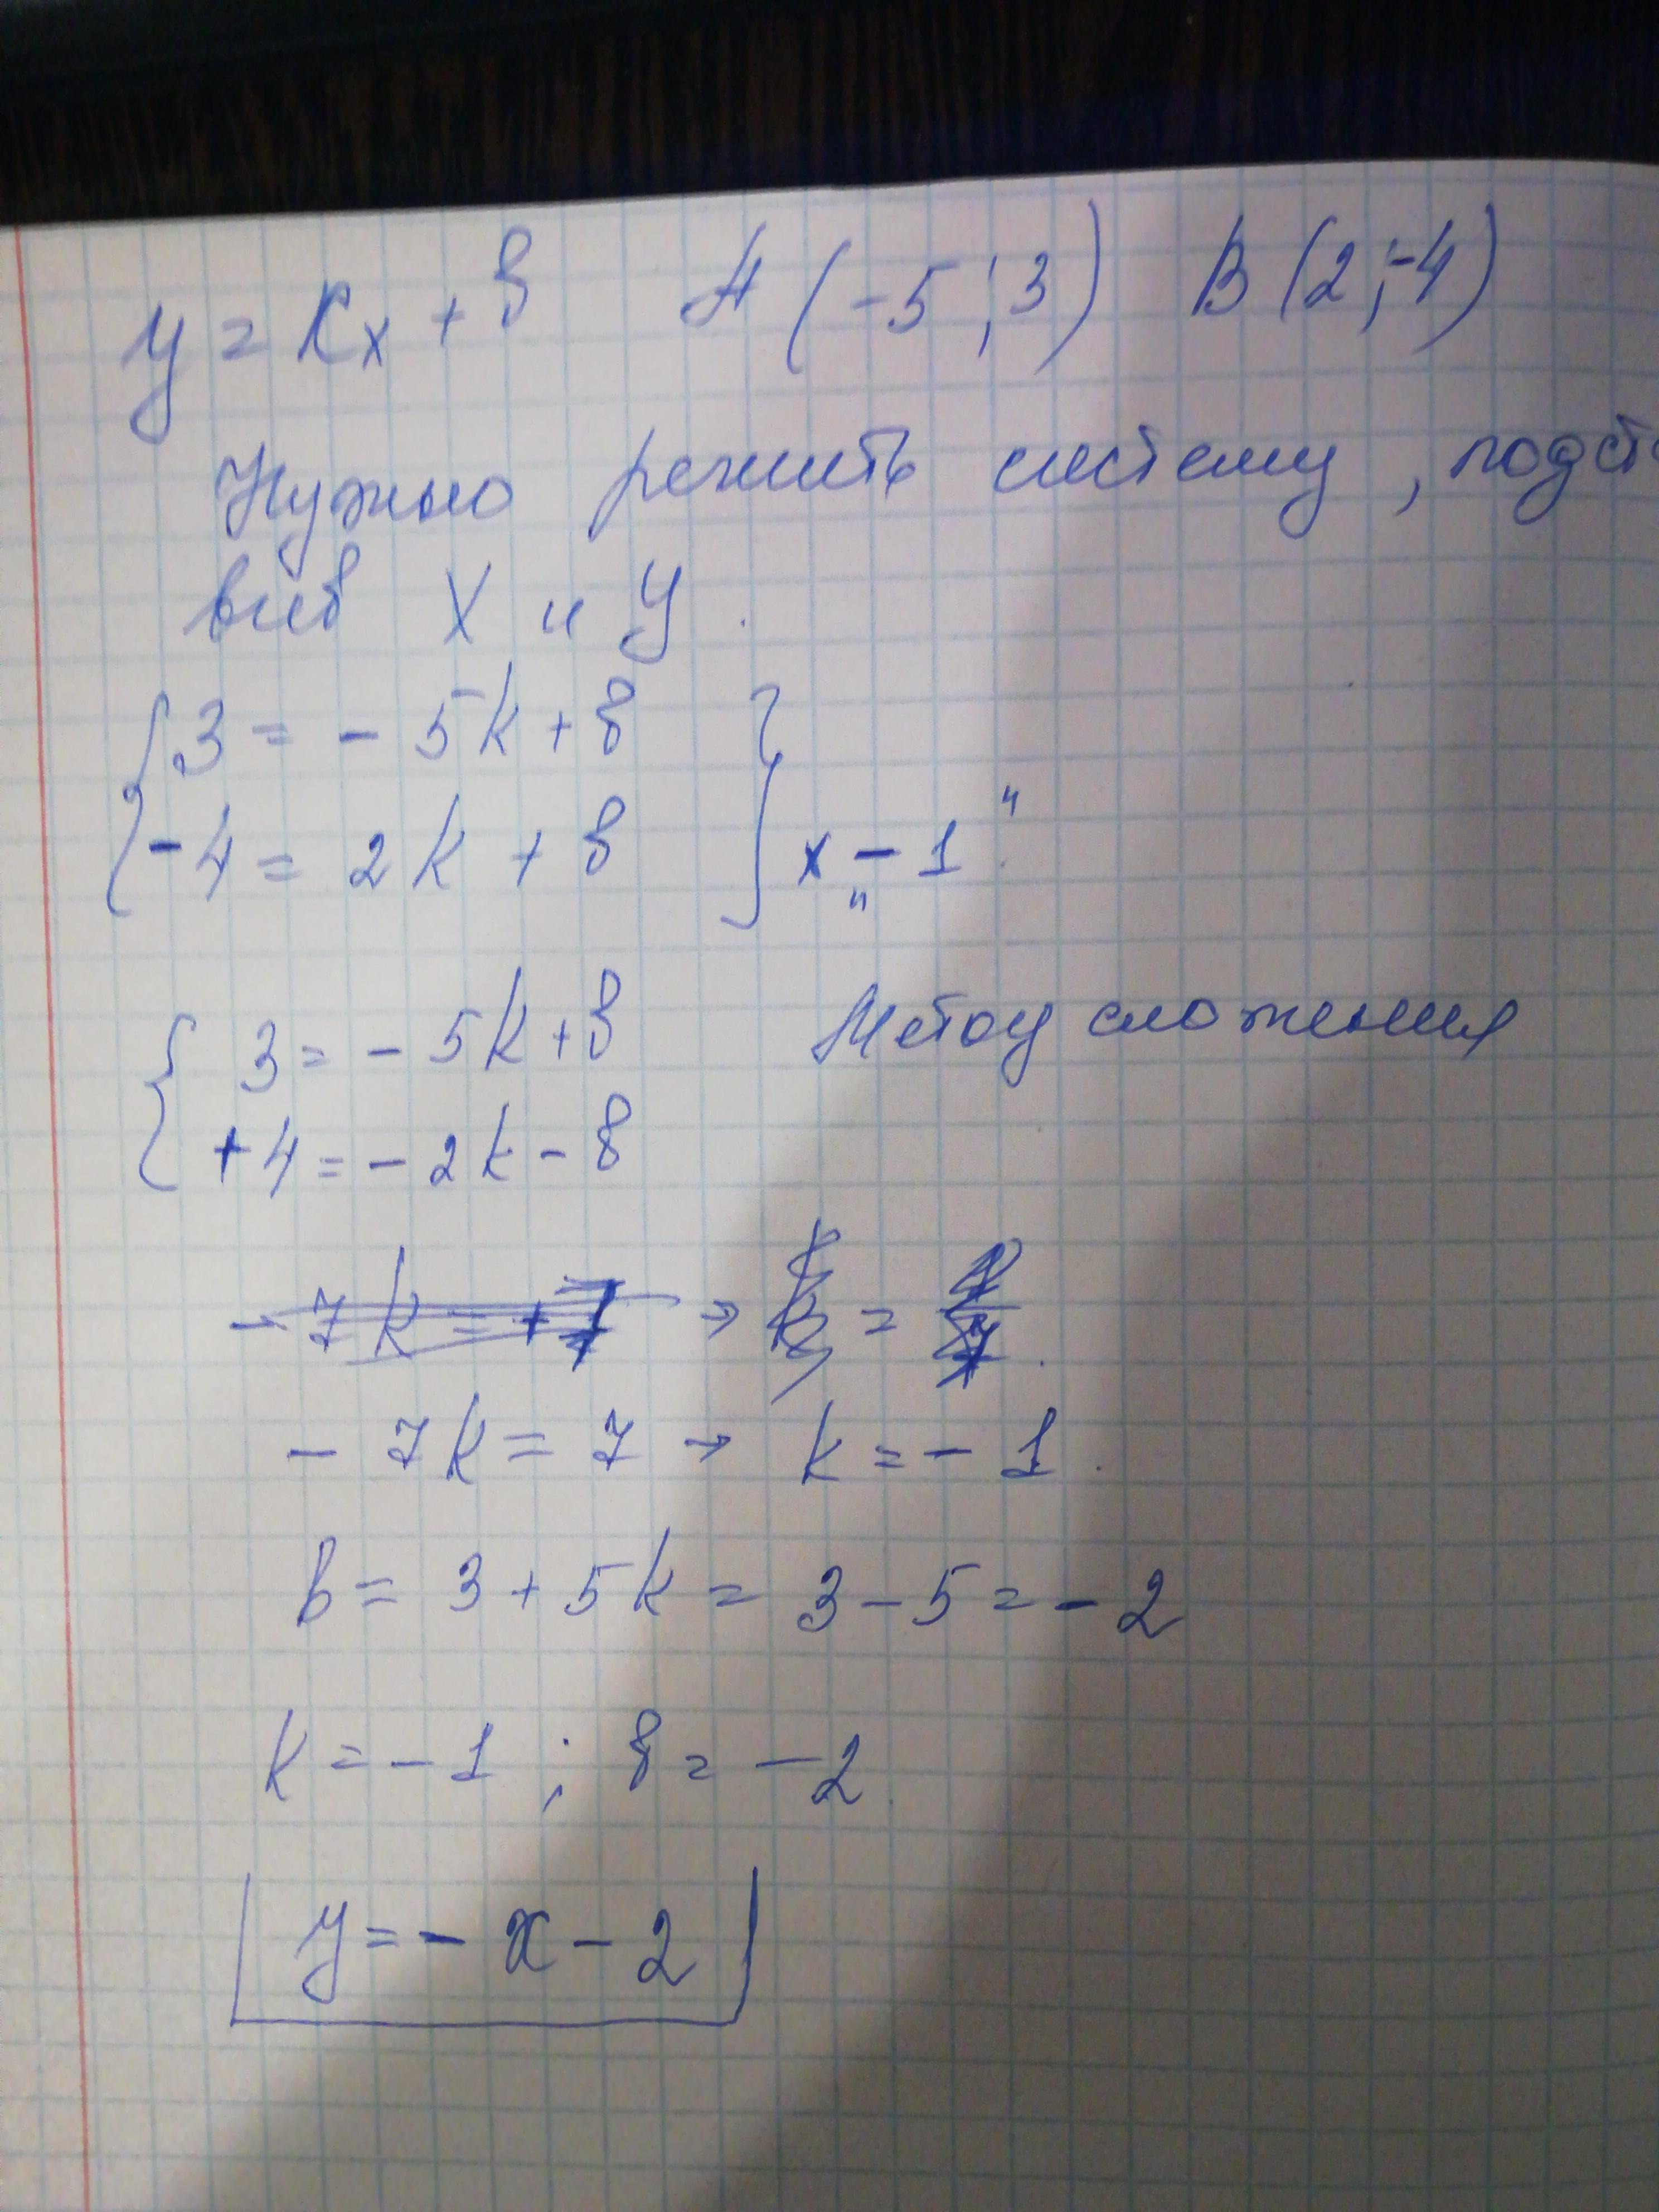 y = kx + в A (-5; 3) B (2; -4)
Нужно решить систему, подст
вив x и y.
{ 3 = - 5k + в
{ -4 = 2k + в } x „-1“.
{ 3 = - 5k + в Метод сложения
{ +4 = - 2k - в
- 7k = +7 → k =
- 7k = 7 → k = - 1.
b = 3 + 5k = 3 - 5 = - 2
k = - 1 ; в = - 2.
y = - x - 2